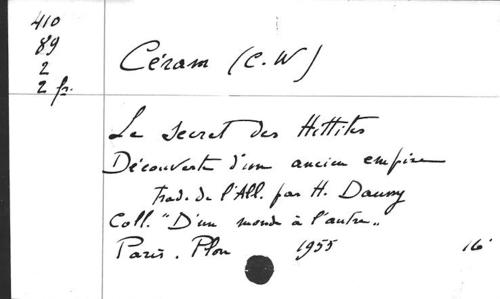 410
89
2
2 fr.
Céram (C.W)
Le secret des Hittites
Découverte d'un ancien empire
Trad. de l'All. par H. Daussy
Coll. "D'un monde à l'autre"
Paris. Plon 1955 16°